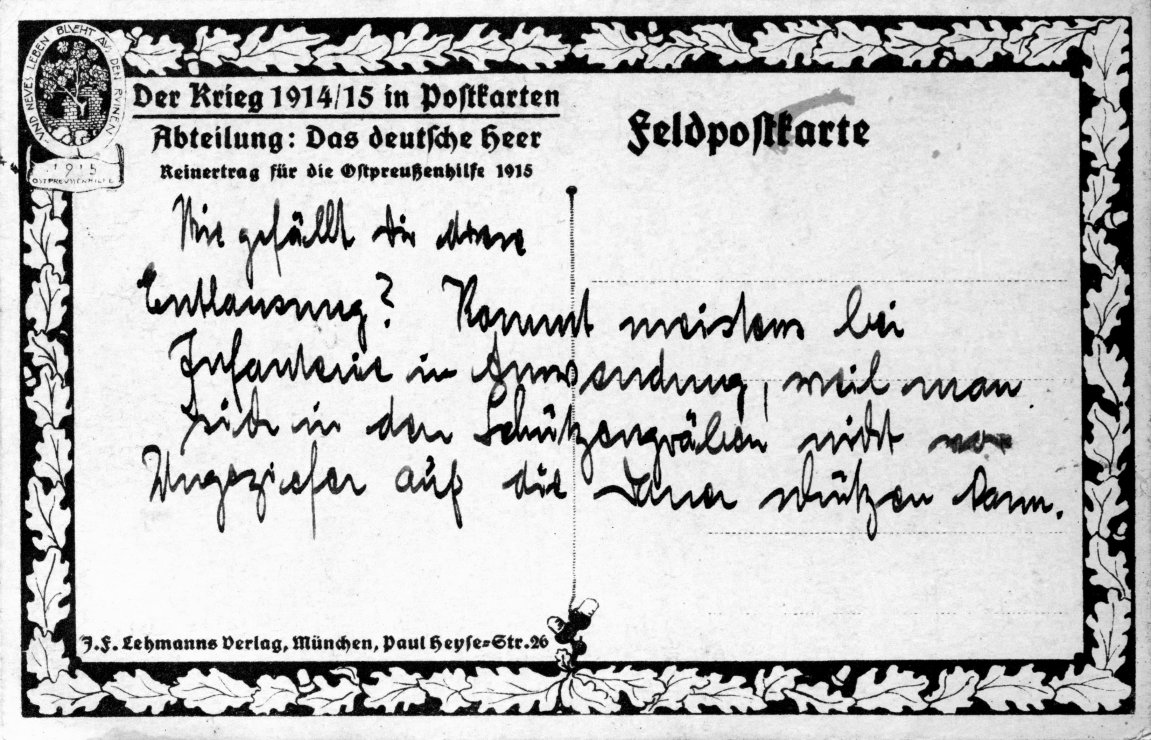 UND NEVES LEBEN BLVEHT AVS DEN RVINEN
1915
OSTPREUSSENHILFE
Der Krieg 1914/15 in Postkarten
Abteilung: Das deutsche Heer
Reinertrag für die Ostpreußenhilfe 1915
Feldpostkarte
Wie gefällt dir diese
Entlausung? Kommt meistens bei
Infanterie in Anwendung, weil man
sich in den Schützengräben nicht vor
Ungeziefer auf die Dauer schützen kann.
J. F. Lehmanns Verlag, München, Paul Heyse=Str. 26